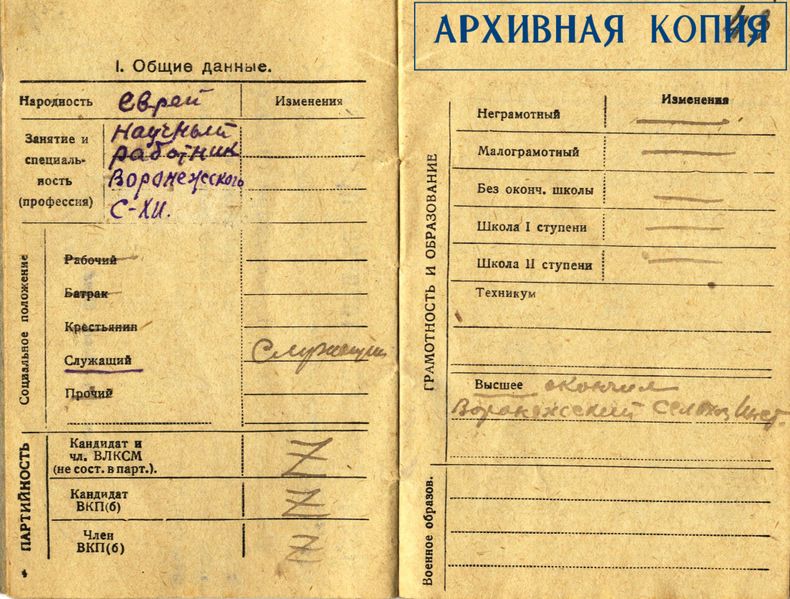 I. Общие данные.
Народность еврей Изменения
Занятие и
специаль-
ность
(профессия)
научный
работник
Воронежского
С-ХИ.
Социальное положение
Рабочий
Батрак
Крестьянин
Служащий Служащий
Прочий
ПАРТИЙНОСТЬ
Кандидат и
чл. ВЛКСМ
(не сост. в парт.).
Кандидат
ВКП(б)
Член
ВКП(б)
4
АРХИВНАЯ КОПИЯ
ГРАМОТНОСТЬ И ОБРАЗОВАНИЕ
Изменения
Неграмотный
Малограмотный
Без оконч. школы
Школа I ступени
Школа II ступени
Техникум
Высшее окончил
Воронежский сельхоз Инст.
Военное образов.